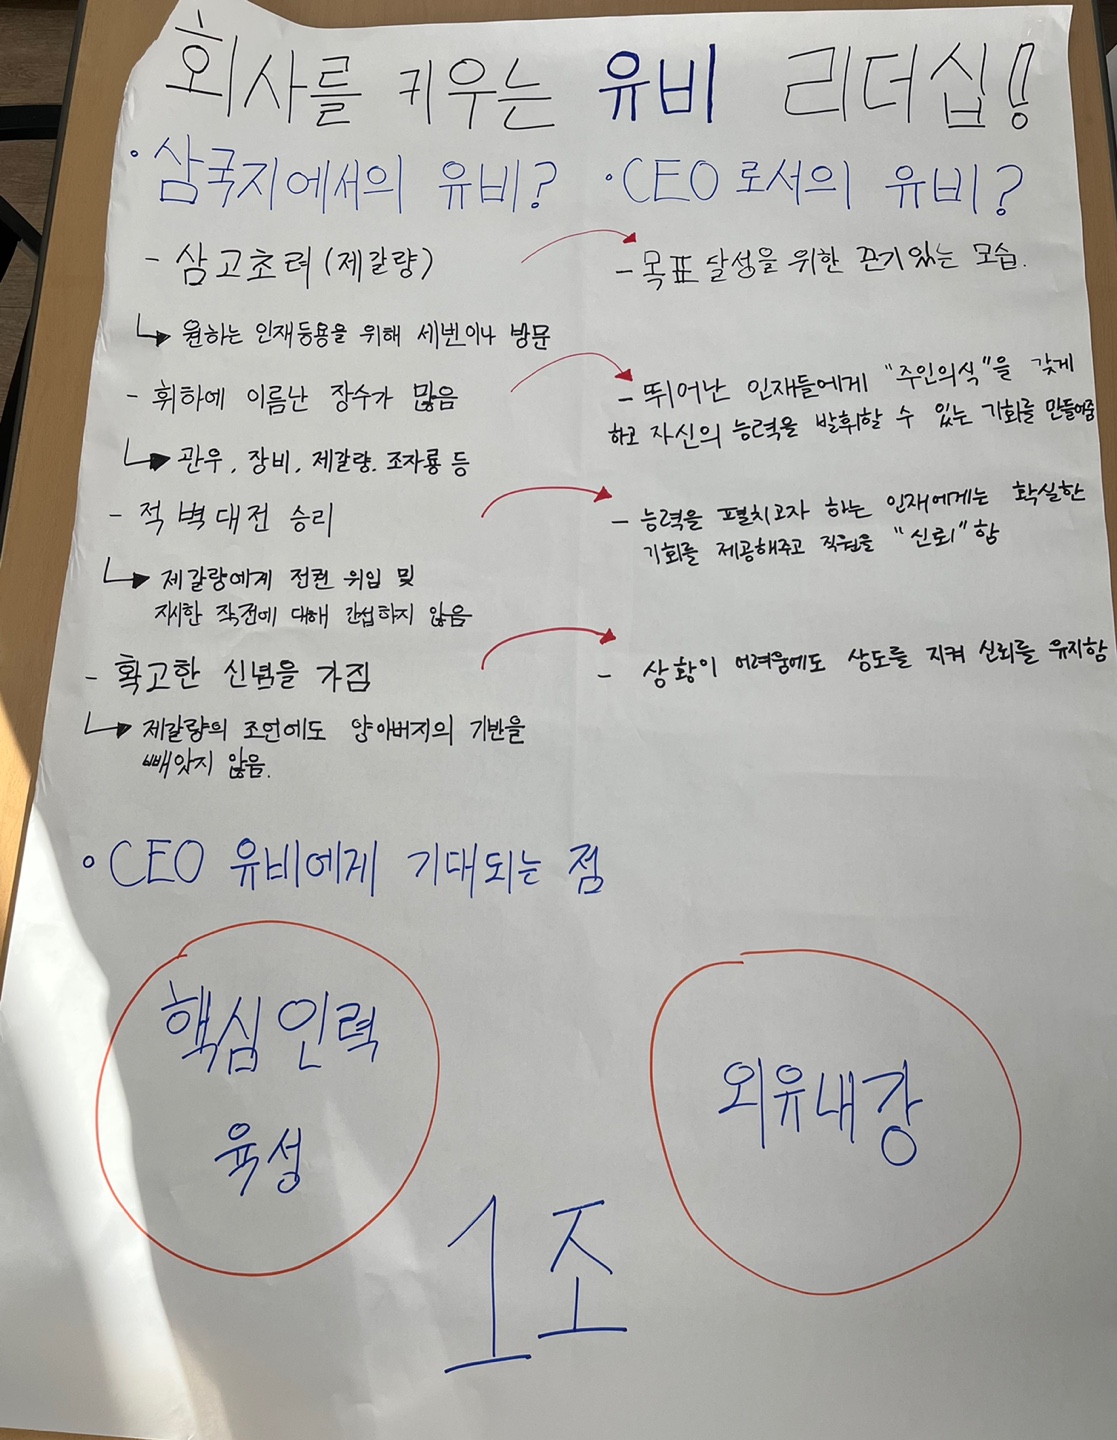 회사를 키우는 유비 리더십!
· 삼국지에서의 유비?
- 삼고초려 (제갈량)
↳ 원하는 인재등용을 위해 세번이나 방문
- 휘하에 이름난 장수가 많음
↳ 관우, 장비, 제갈량. 조자룡 등
- 적벽대전 승리
↳ 제갈량에게 전권 위임 및
지시한 작전에 대해 간섭하지 않음
- 확고한 신념을 가짐
↳ 제갈량의 조언에도 양아버지의 기반을
빼앗지 않음.
· CEO로서의 유비?
- 목표 달성을 위한 끈기있는 모습.
- 뛰어난 인재들에게 "주인의식"을 갖게
하고 자신의 능력을 발휘할 수 있는 기회를 만들어줌
- 능력을 펼치고자 하는 인재에게는 확실한
기회를 제공해주고 직원을 "신뢰"함
- 상황이 어려움에도 상도를 지켜 신뢰를 유지함
· CEO 유비에게 기대되는 점
핵심인력
육성
외유내강
1조